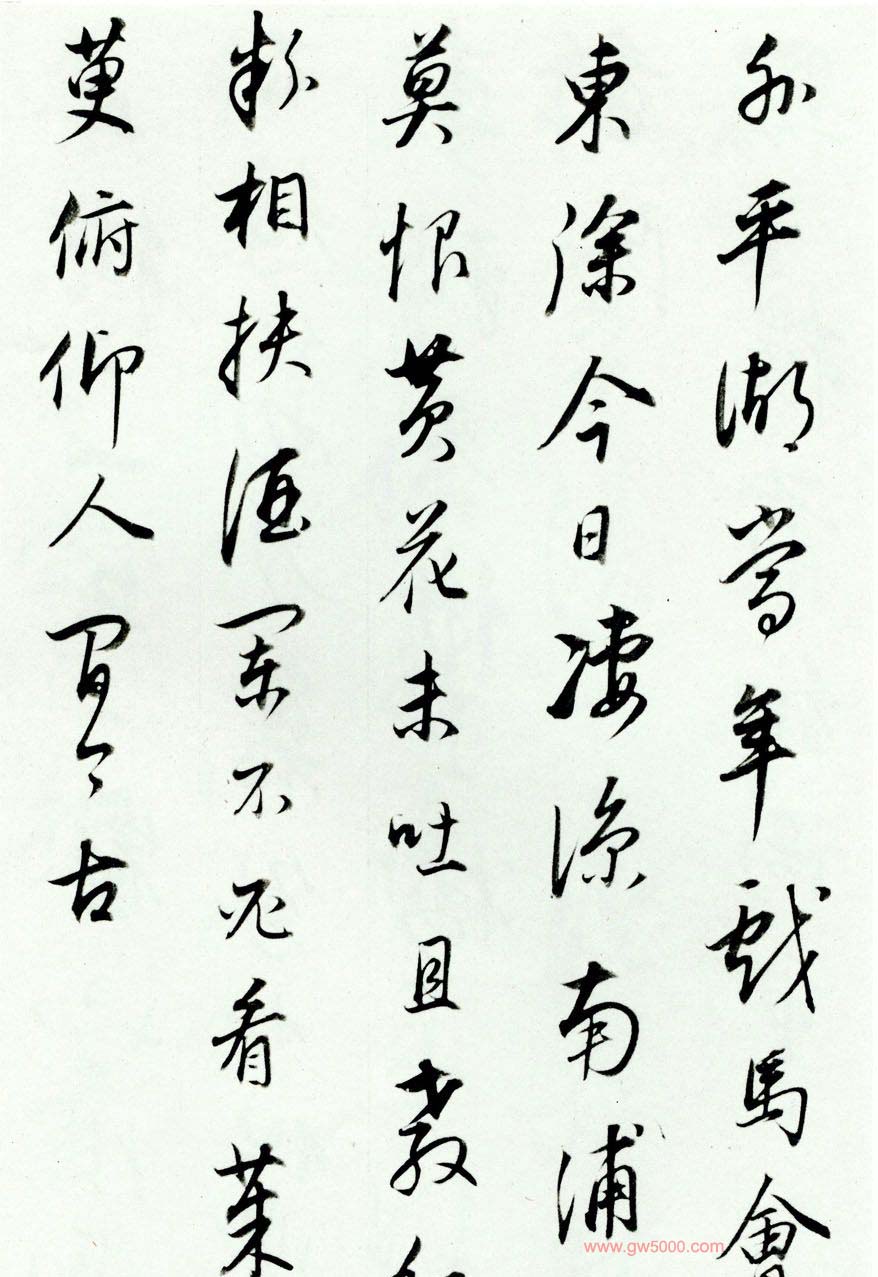 外平湖當年戲馬會
東徐今日淒涼南浦
莫恨黃花未吐且教
粉相扶酒闌不必看茱
萸俯仰人間今古
www.gw5000.com